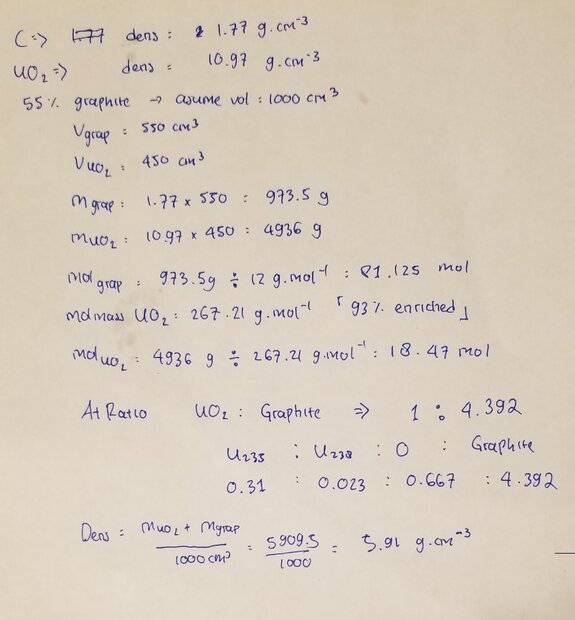 C => dens : 1.77 g.cm⁻³
UO₂ => dens = 10.97 g.cm⁻³
55% graphite → asume vol : 1000 cm³
Vgrap : 550 cm³
VUO₂ : 450 cm³
mgrap : 1.77 × 550 : 973.5 g
mUO₂ : 10.97 × 450 : 4936 g
molgrap : 973.5g ÷ 12 g.mol⁻¹ : 81.125 mol
molmass UO₂ : 267.21 g.mol⁻¹ 「93% enriched」
molUO₂ : 4936 g ÷ 267.21 g.mol⁻¹ : 18.47 mol
At Ratio UO₂ : Graphite => 1 : 4.392
U₂₃₅ : U₂₃₈ : O : Graphite
0.31 : 0.023 : 0.667 : 4.392
Dens = mUO₂ + mgrap / 1000 cm³ = 5909.5 / 1000 = 5.91 g.cm⁻³